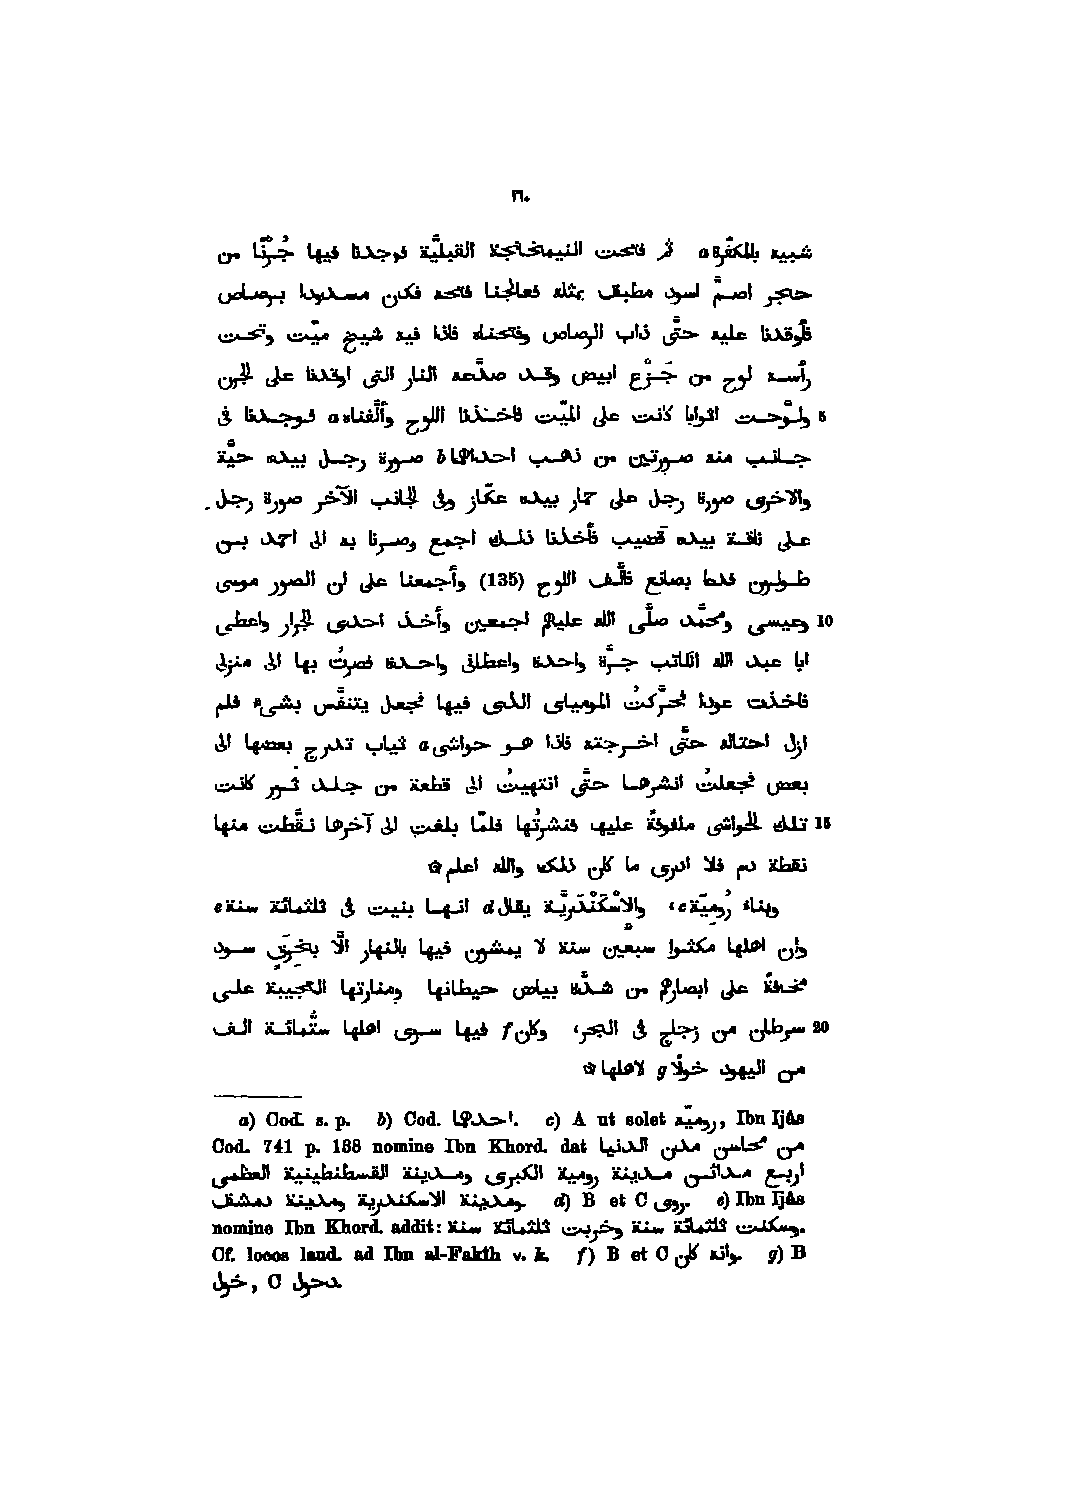 ١٦٠
شبيه بالمكفّرة a ثم فتحت النيمخانجة القبليّة فوجدنا فيها جُرْنًا من
حجر اصمّ اسود مطبق بمثله فعالجنا فتحه فكان مسدودا برصاص
فأوقدنا عليه حتَّى ذاب الرصاص وفتحناه فاذا فيه شيخ ميّت وتحت
رأسه لوح من جَزْع ابيض وقد صدّعته النار التى اوقدنا على الجرن
5 ولوّحت اثوابا كانت على الميّت فاخذنا اللوح وألّفناه a فوجدنا فى
جانب منه صورتين من ذهب احداهما b صورة رجل بيده حيّة
والاخرى صورة رجل على حمار بيده عكّاز وفى الجانب الآخر صورة رجل
على ناقة بيده قضيب فأخذنا ذلك اجمع وصرنا به الى احمد بن
طولون فدعا بصانع فألّف اللوح (135) وأجمعنا على ان الصور موسى
10 وعيسى ومحمّد صلّى الله عليهم اجمعين وأخذ احدى الجرار واعطى
ابا عبد الله الكاتب جرّة واحدة واعطانى واحدة فصرتُ بها الى منزلى
فاخذت عودا فحرّكتُ الموميائى الذى فيها فجعل يتنفّس بشىء فلم
ازل احتاله حتَّى اخرجته فاذا هو حواشى a ثياب تدرج بعضها الى
بعض فجعلتُ انشرها حتَّى انتهيتُ الى قطعة من جلد ثور كانت
15 تلك الحواشى ملفوفةً عليها فنشرتُها فلمّا بلغت الى آخرها نقّطت منها
نقطة دم فلا ادرى ما كان ذلك والله اعلم ۞
وبناء رُوميّة c، والإسْكَنْدَريَّة يقال d انها بنيت فى ثلثمائة سنة e
وان اهلها مكثوا سبعين سنة لا يمشون فيها بالنهار الّا بخِرَق سود
مخافةً على ابصارهم من شدّة بياض حيطانها ومنارتها العجيبة على
20 سرطان من زجاج فى البحر، وكان f فيها سوى اهلها ستّمائة الف
من اليهود خولًا g لاهلها ۞
a) Cod. s. p. b) Cod. احداها. c) A ut solet روميّه, Ibn Ijâs
Cod. 741 p. 188 nomine Ibn Khord. dat من محاسن مدن الدنيا
اربع مدائن مدينة رومية الكبرى ومدينة القسطنطينية العظمى
ومدينة الاسكندرية ومدينة دمشق. d) B et C روى. e) Ibn Ijâs
nomine Ibn Khord. addit: وسكنت ثلثمائة سنة وخربت ثلثمائة سنة.
Cf. locos laud. ad Ibn al-Fakîh v. k. f) B et C وانه كان. g) B
خول, C دحول